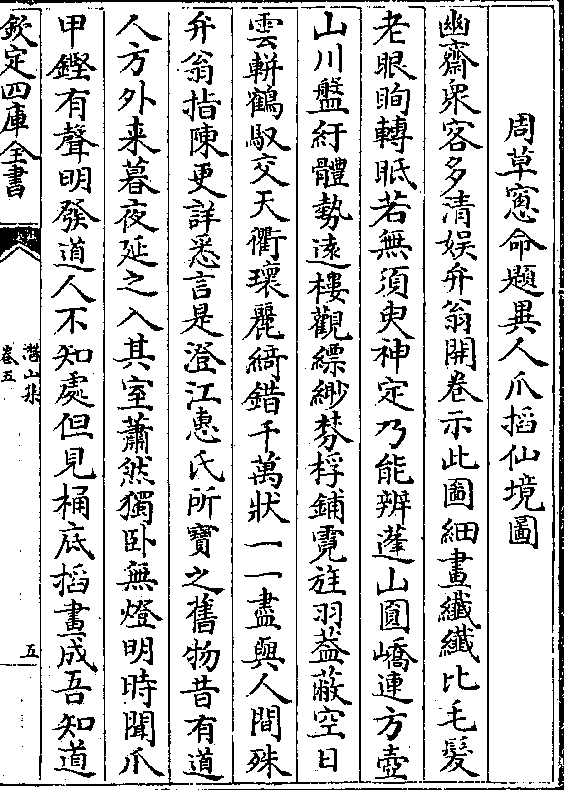 周草窻命題異人爪搯仙境圖
幽齋衆客多清娛弁翁開卷示此圖細畫纎纎比毛髮
老眼眴轉眡若無須臾神定乃能辨蓬山圓嶠連方壺
山川盤紆體勢遠樓觀縹緲棼桴鋪霓旌羽葢蔽空日
雲輧鶴馭交天衢瓌麗綺錯千萬狀一一盡與人間殊
弁翁指陳更詳悉言是澄江惠氏所寶之舊物昔有道
人方外来暮夜延之入其室蕭然獨卧無燈明時聞爪
甲鏗有聲明發道人不知處但見桶底搯畫成吾知道
欽定四庫全書
潛山集
卷五
五